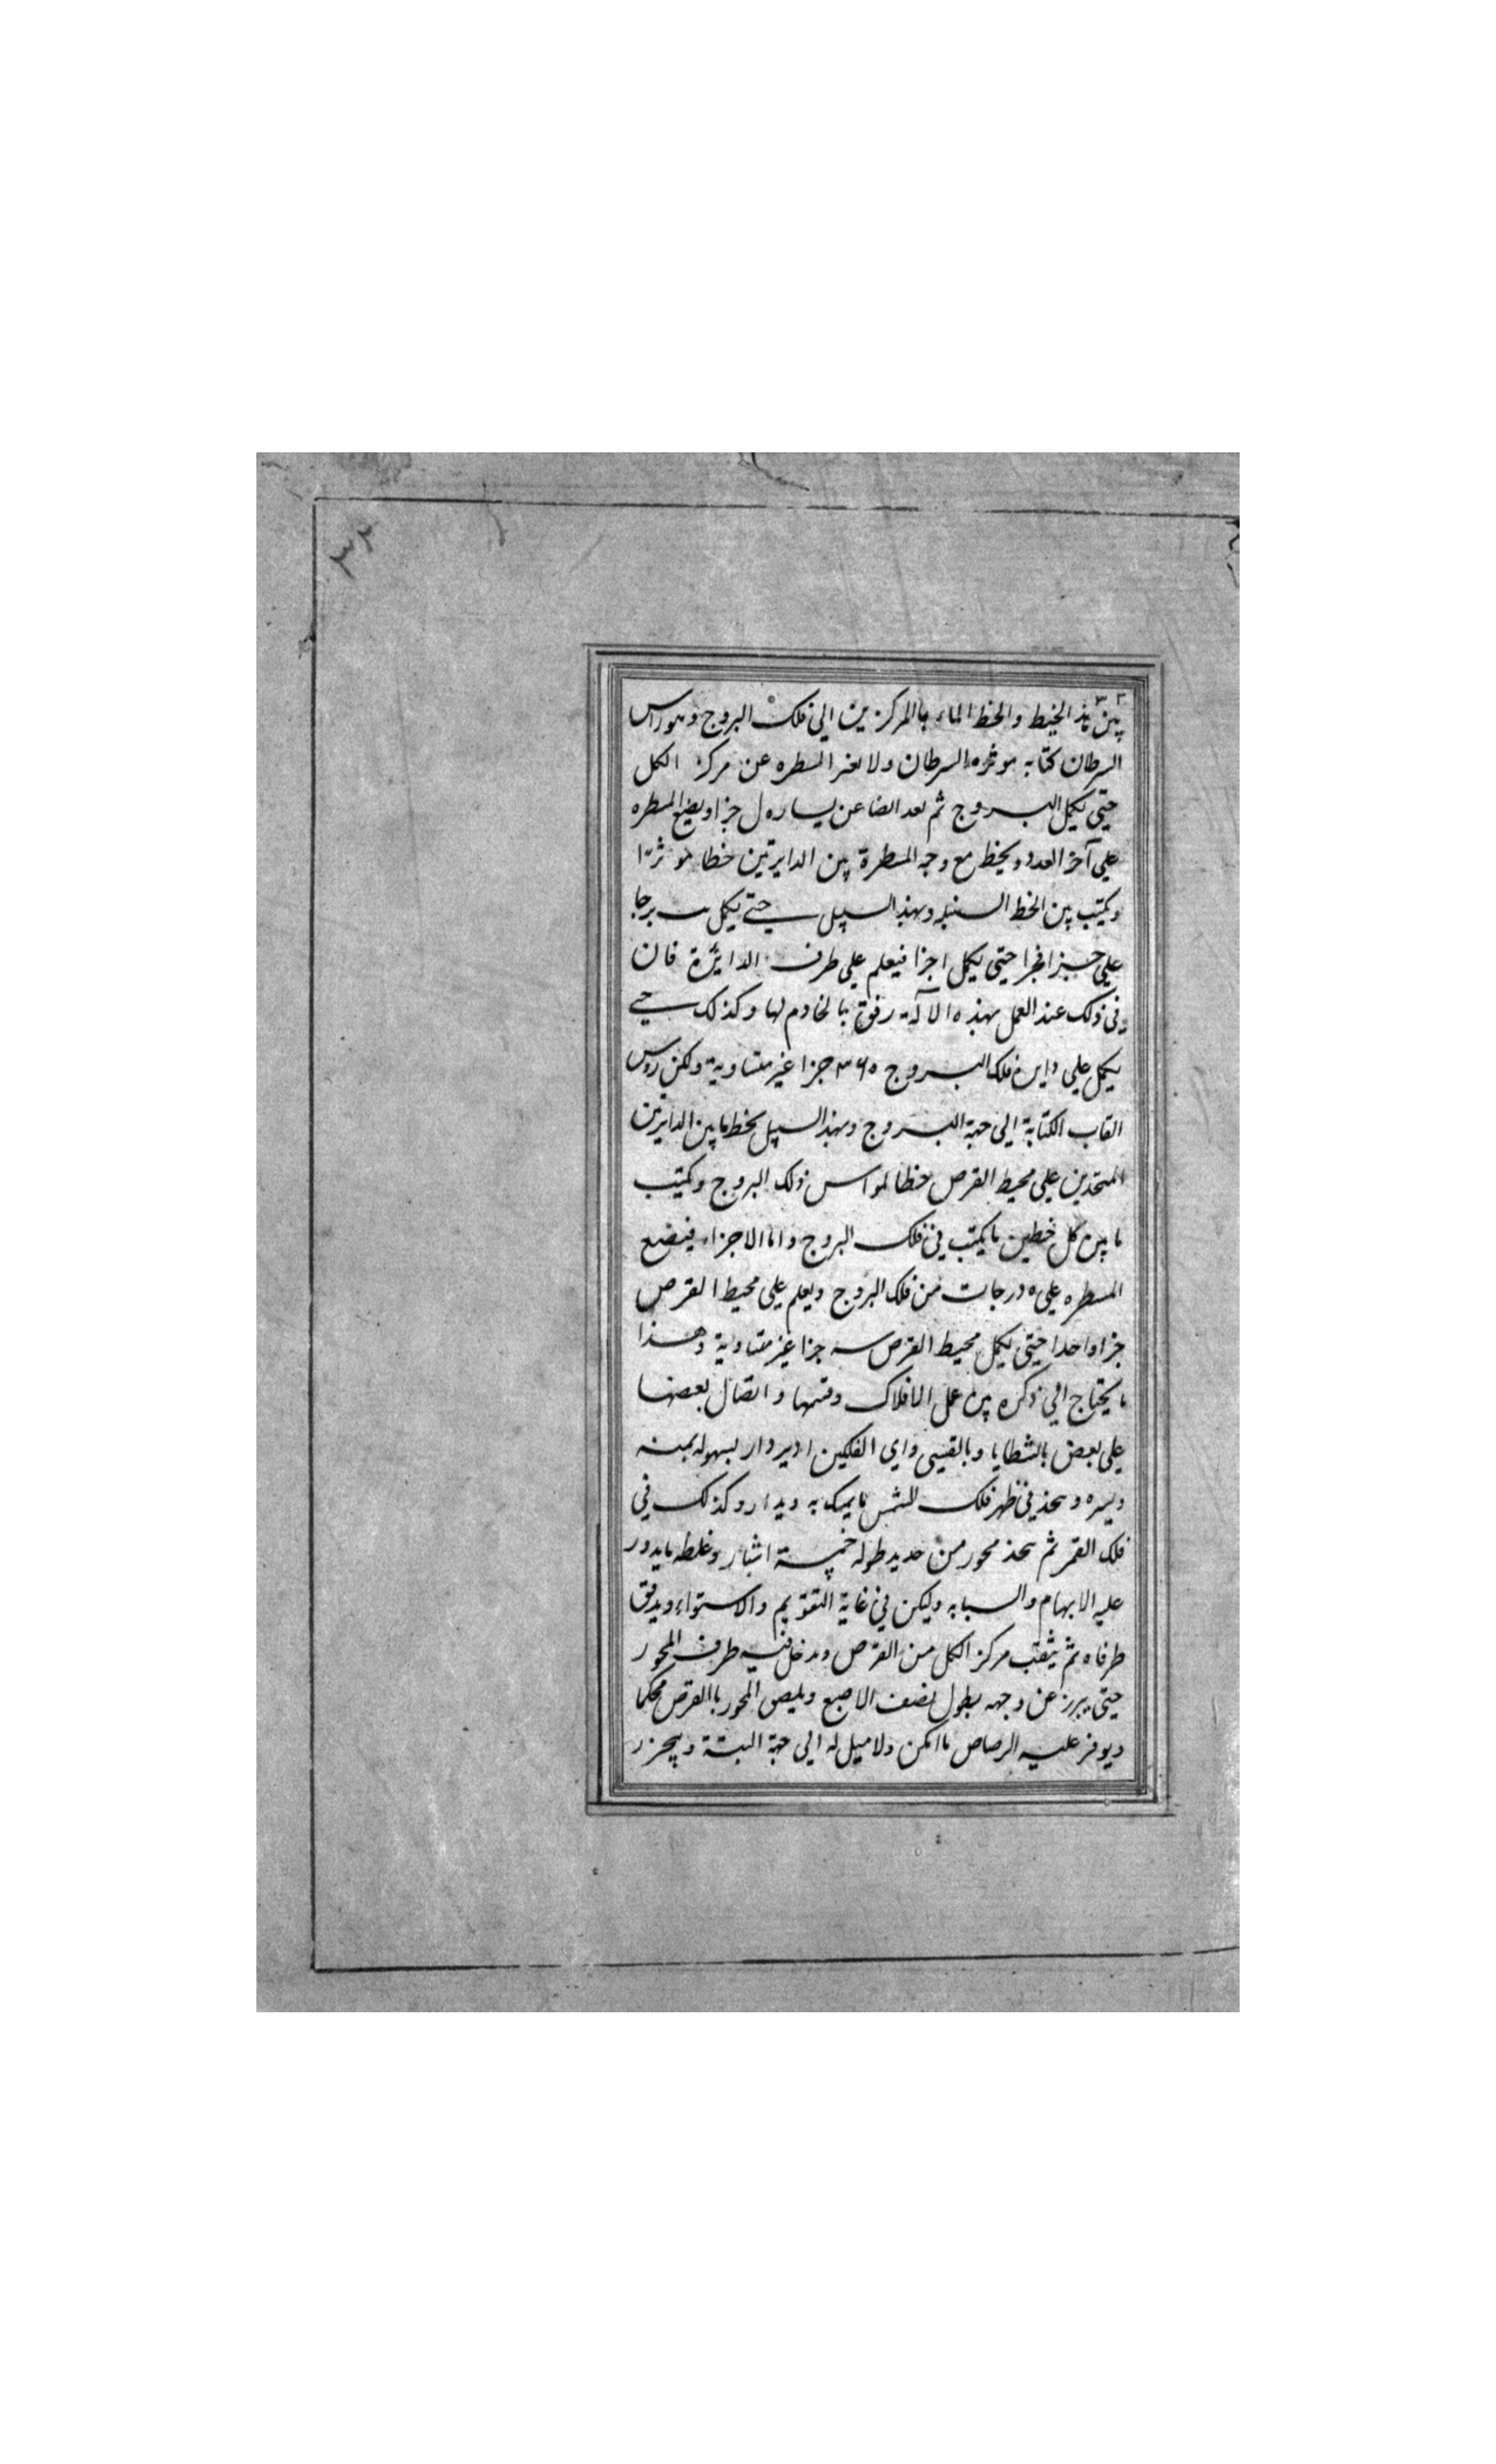 ٣٣
٣٢
بين هذا الخيط والخط المار بالمركزين الى فلك البروج وهو راس
السرطان كتابه موثره السرطان ولا تغير المسطره عن مركز الكل
حتى يكمل البروج ثم تعد ايضا عن يساره ل جزا ويضع المسطره
على آخر العدد ويخط مع وجه المسطرة بين الدايرتين خطا موثرا
ويكتب بين الخط السنبله وبهذا السبيل حتى يكمل ىب برجا
على جزا فجزا حتى يكمل اجزا فيعلم على طرف الدائرة فان
فى ذلك عند العمل بهذه الآلة رفق بالخادم لها وكذلك حتى
يكمل على دايرة فلك البروج ٣٦٥ جزا غير متساوية ولكن روس
القاب الكتابة الى جهة البروج وبهذا السبيل يخط ما بين الدايرتين
المتحدين على محيط القرص خطا لمواس فلك البروج وكتب
ما بين كل خطين ما يكتب فى فلك البروج واما الاجزاء فيضع
المسطره على ٥ درجات من فلك البروج ويعلم على محيط القرص
جزا واحدا حتى يكمل محيط القرص سه جزا غير متساوية وهذا
ما يحتاج الى ذكره من عمل الافلاك وقسمها واتصال بعضها
على بعض بالشطايا وبالقسى واى الفلكين ادير دار بسهوله يمنه
ويسره وسحذ فى ظهر فلك الشمس ما يمسك به ويدار وكذلك فى
فلك القمر ثم سحذ محور من حديد طوله خمسة اشبار وغلظه ما يدور
عليه الابهام والسبابه وليكن فى غاية التقويم والاستواء ويدقق
طرفاه ثم يثقب مركز الكل من القرص ويدخل فيه طرف المحور
حتى يبرز عن وجهه بطول نصف الاصبع ويلصق المحور باالقرص محكما
ويوفر عليه الرصاص ما امكن ولا ميل له الى جهة البتة ويحرز